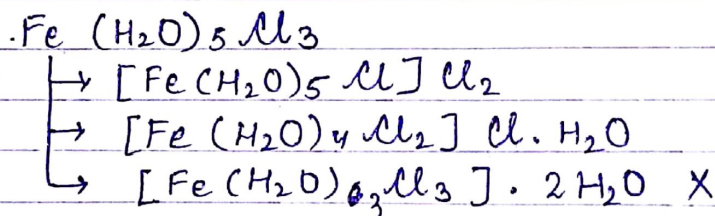 .Fe (H₂O)5 Cl3
→ [Fe(H₂O)5 Cl] Cl₂
→ [Fe (H₂O)4 Cl₂] Cl. H₂O
→ [Fe(H₂O)3 Cl3]. 2H₂O X